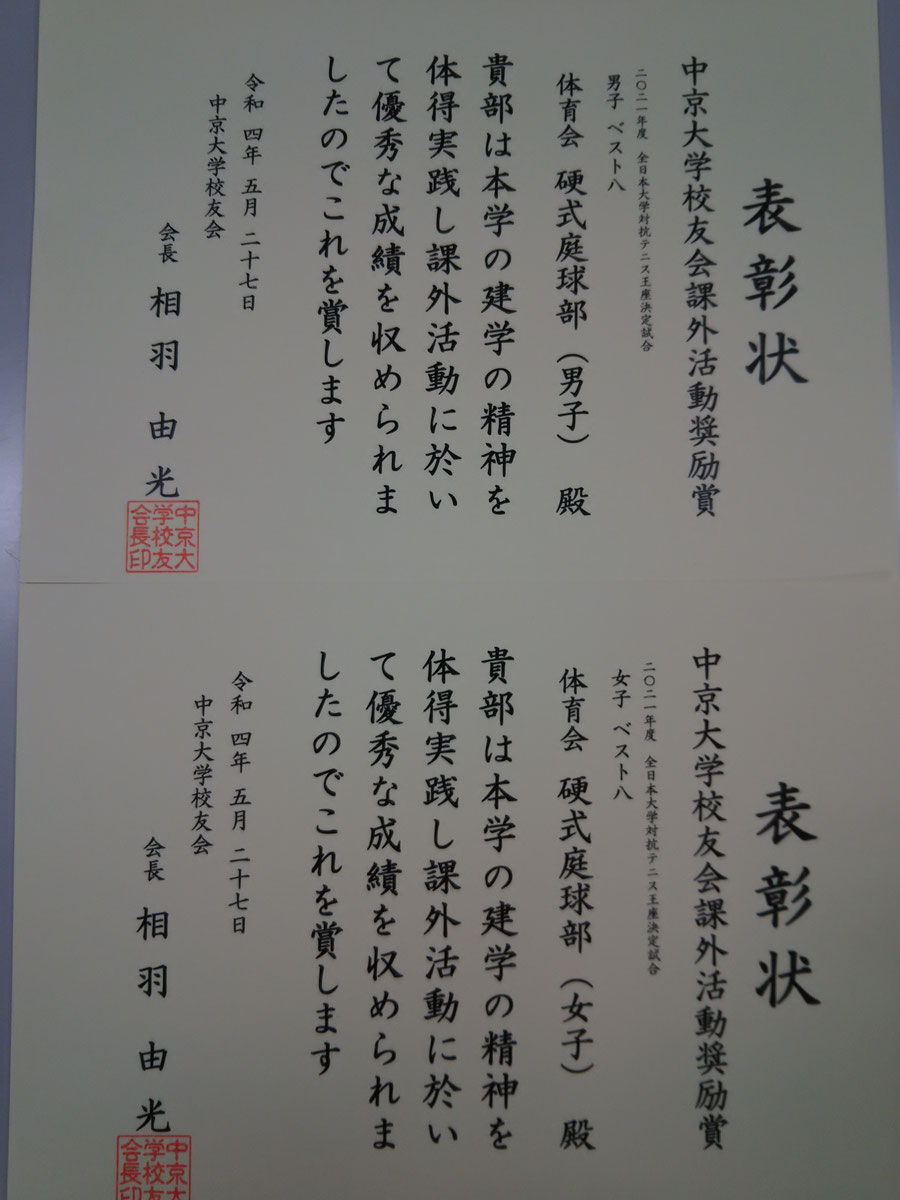 表彰状
中京大学校友会課外活動奨励賞
二〇二一年度 全日本大学対抗テニス王座決定試合
男子 ベスト八
体育会 硬式庭球部（男子） 殿
貴部は本学の建学の精神を
体得実践し課外活動に於い
て優秀な成績を収められま
したのでこれを賞します
令和 四年 五月 二十七日
中京大学校友会
会長 相羽 由光
中京大
学校友
会長印
表彰状
中京大学校友会課外活動奨励賞
二〇二一年度 全日本大学対抗テニス王座決定試合
女子 ベスト八
体育会 硬式庭球部（女子） 殿
貴部は本学の建学の精神を
体得実践し課外活動に於い
て優秀な成績を収められま
したのでこれを賞します
令和 四年 五月 二十七日
中京大学校友会
会長 相羽 由光
中京大
学校友
会長印